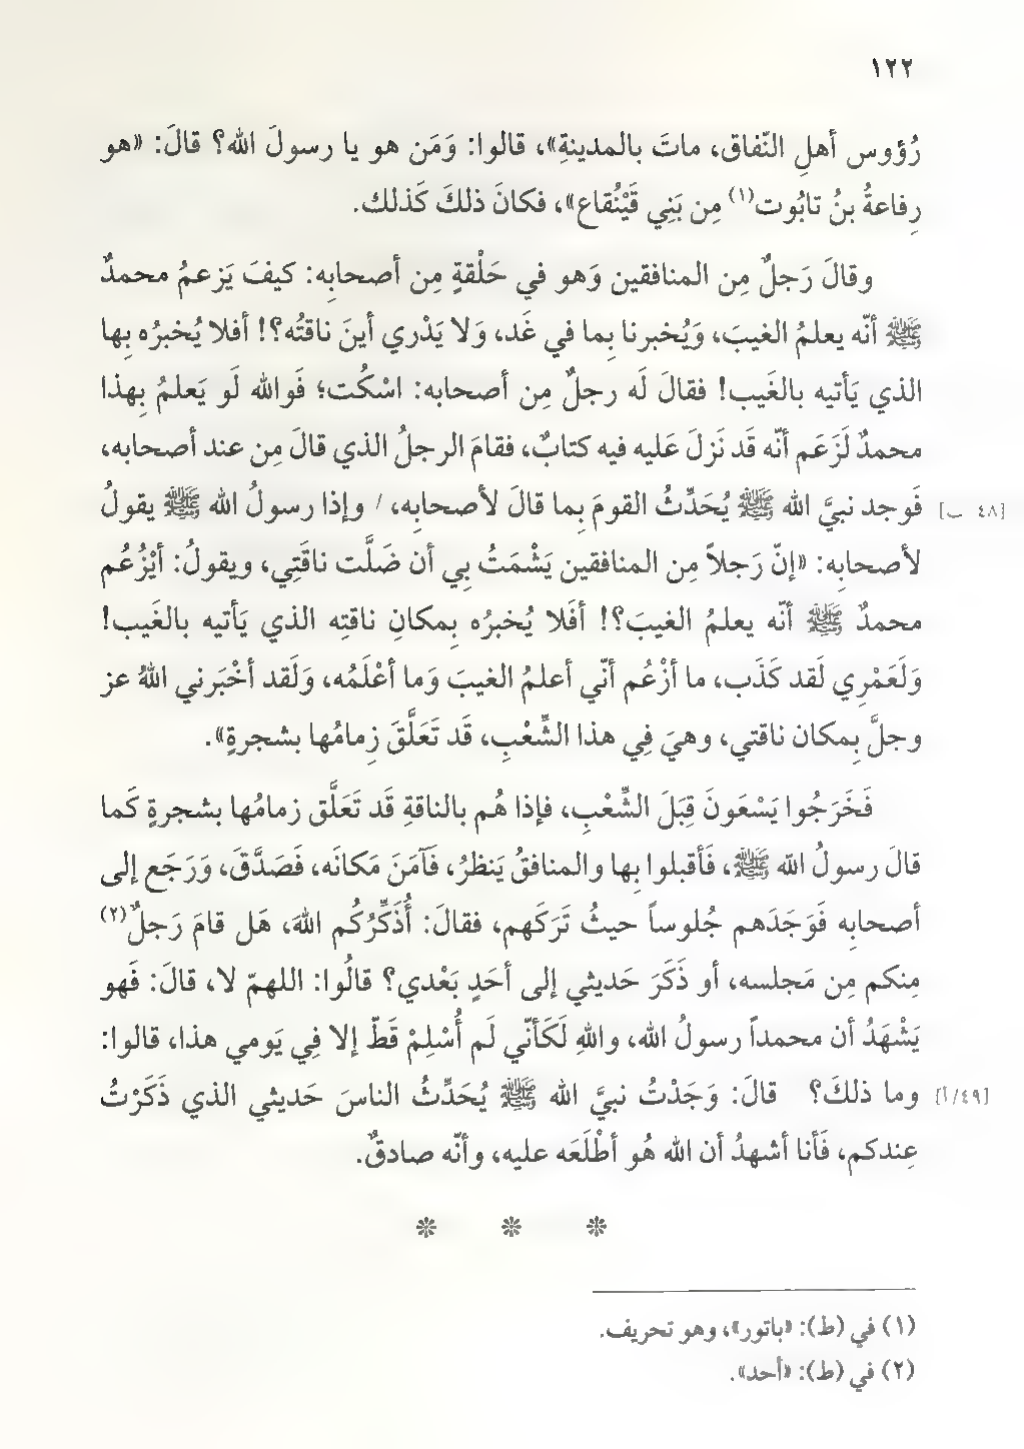 ١٢٢
رُؤوس أهلِ النّفاق، ماتَ بالمدينةِ»، قالوا: وَمَن هو يا رسولَ الله؟ قالَ: «هو
رِفاعةُ بنُ تابُوت(١) مِن بَنِي قَيْنُقاع»، فكانَ ذلكَ كَذلك.
وقالَ رَجلٌ مِن المنافقين وَهو في حَلْقةٍ مِن أصحابِه: كيفَ يَزعمُ محمدٌ
ﷺ أنّه يعلمُ الغيبَ، وَيُخبرنا بِما في غَد، وَلا يَدْري أينَ ناقتُه؟! أفلا يُخبرُه بِها
الذي يَأتيه بالغَيب! فقالَ لَه رجلٌ مِن أصحابه: اسْكُت؛ فَوالله لَو يَعلمُ بِهذا
محمدٌ لَزَعَم أنّه قَد نَزلَ عَليه فيه كتابٌ، فقامَ الرجلُ الذي قالَ مِن عند أصحابه،
فَوجد نبيَّ الله ﷺ يُحَدِّثُ القومَ بِما قالَ لأصحابِه، / وإذا رسولُ الله ﷺ يقولُ [٤٨ ب]
لأصحابِه: «إنّ رَجلاً مِن المنافقين يَشْمَتُ بِي أن ضَلَّت ناقَتِي، ويقولُ: أيْزُعُم
محمدٌ ﷺ أنّه يعلمُ الغيبَ؟! أفَلا يُخبرُه بِمكانِ ناقتِه الذي يَأتيه بالغَيب!
وَلَعَمْرِي لَقد كَذَب، ما أزْعُم أنّي أعلمُ الغيبَ وَما أعْلَمُه، وَلَقد أخْبَرني اللهُ عز
وجلَّ بِمكان ناقتي، وهيَ فِي هذا الشِّعْبِ، قَد تَعَلَّقَ زِمامُها بشجرةٍ».
فَخَرَجُوا يَسْعَونَ قِبَلَ الشِّعْبِ، فإذا هُم بالناقةِ قَد تَعَلَّق زمامُها بشجرةٍ كَما
قالَ رسولُ الله ﷺ، فَأقبلوا بِها والمنافقُ يَنظرُ، فَآمَنَ مَكانَه، فَصَدَّقَ، وَرَجَع إلى
أصحابِه فَوَجَدَهم جُلوساً حيثُ تَرَكَهم، فقالَ: أُذَكِّرُكُم اللهَ، هَل قامَ رَجلٌ(٢)
مِنكم مِن مَجلسه، أو ذَكَرَ حَديثي إلى أحَدٍ بَعْدي؟ قالُوا: اللهمّ لا، قالَ: فَهو
يَشْهَدُ أن محمداً رسولُ الله، واللهِ لَكَأنّي لَم أُسْلِمْ قَطّ إلا فِي يَومي هذا، قالوا:
وما ذلكَ؟ قالَ: وَجَدْتُ نبيَّ الله ﷺ يُحَدِّثُ الناسَ حَديثي الذي ذَكَرْتُ [٤٩/أ]
عِندكم، فَأنا أشهدُ أن الله هُو أطْلَعَه عليه، وأنّه صادقٌ.
* * *
(١) في (ط): «باتور»، وهو تحريف.
(٢) في (ط): «أحد».